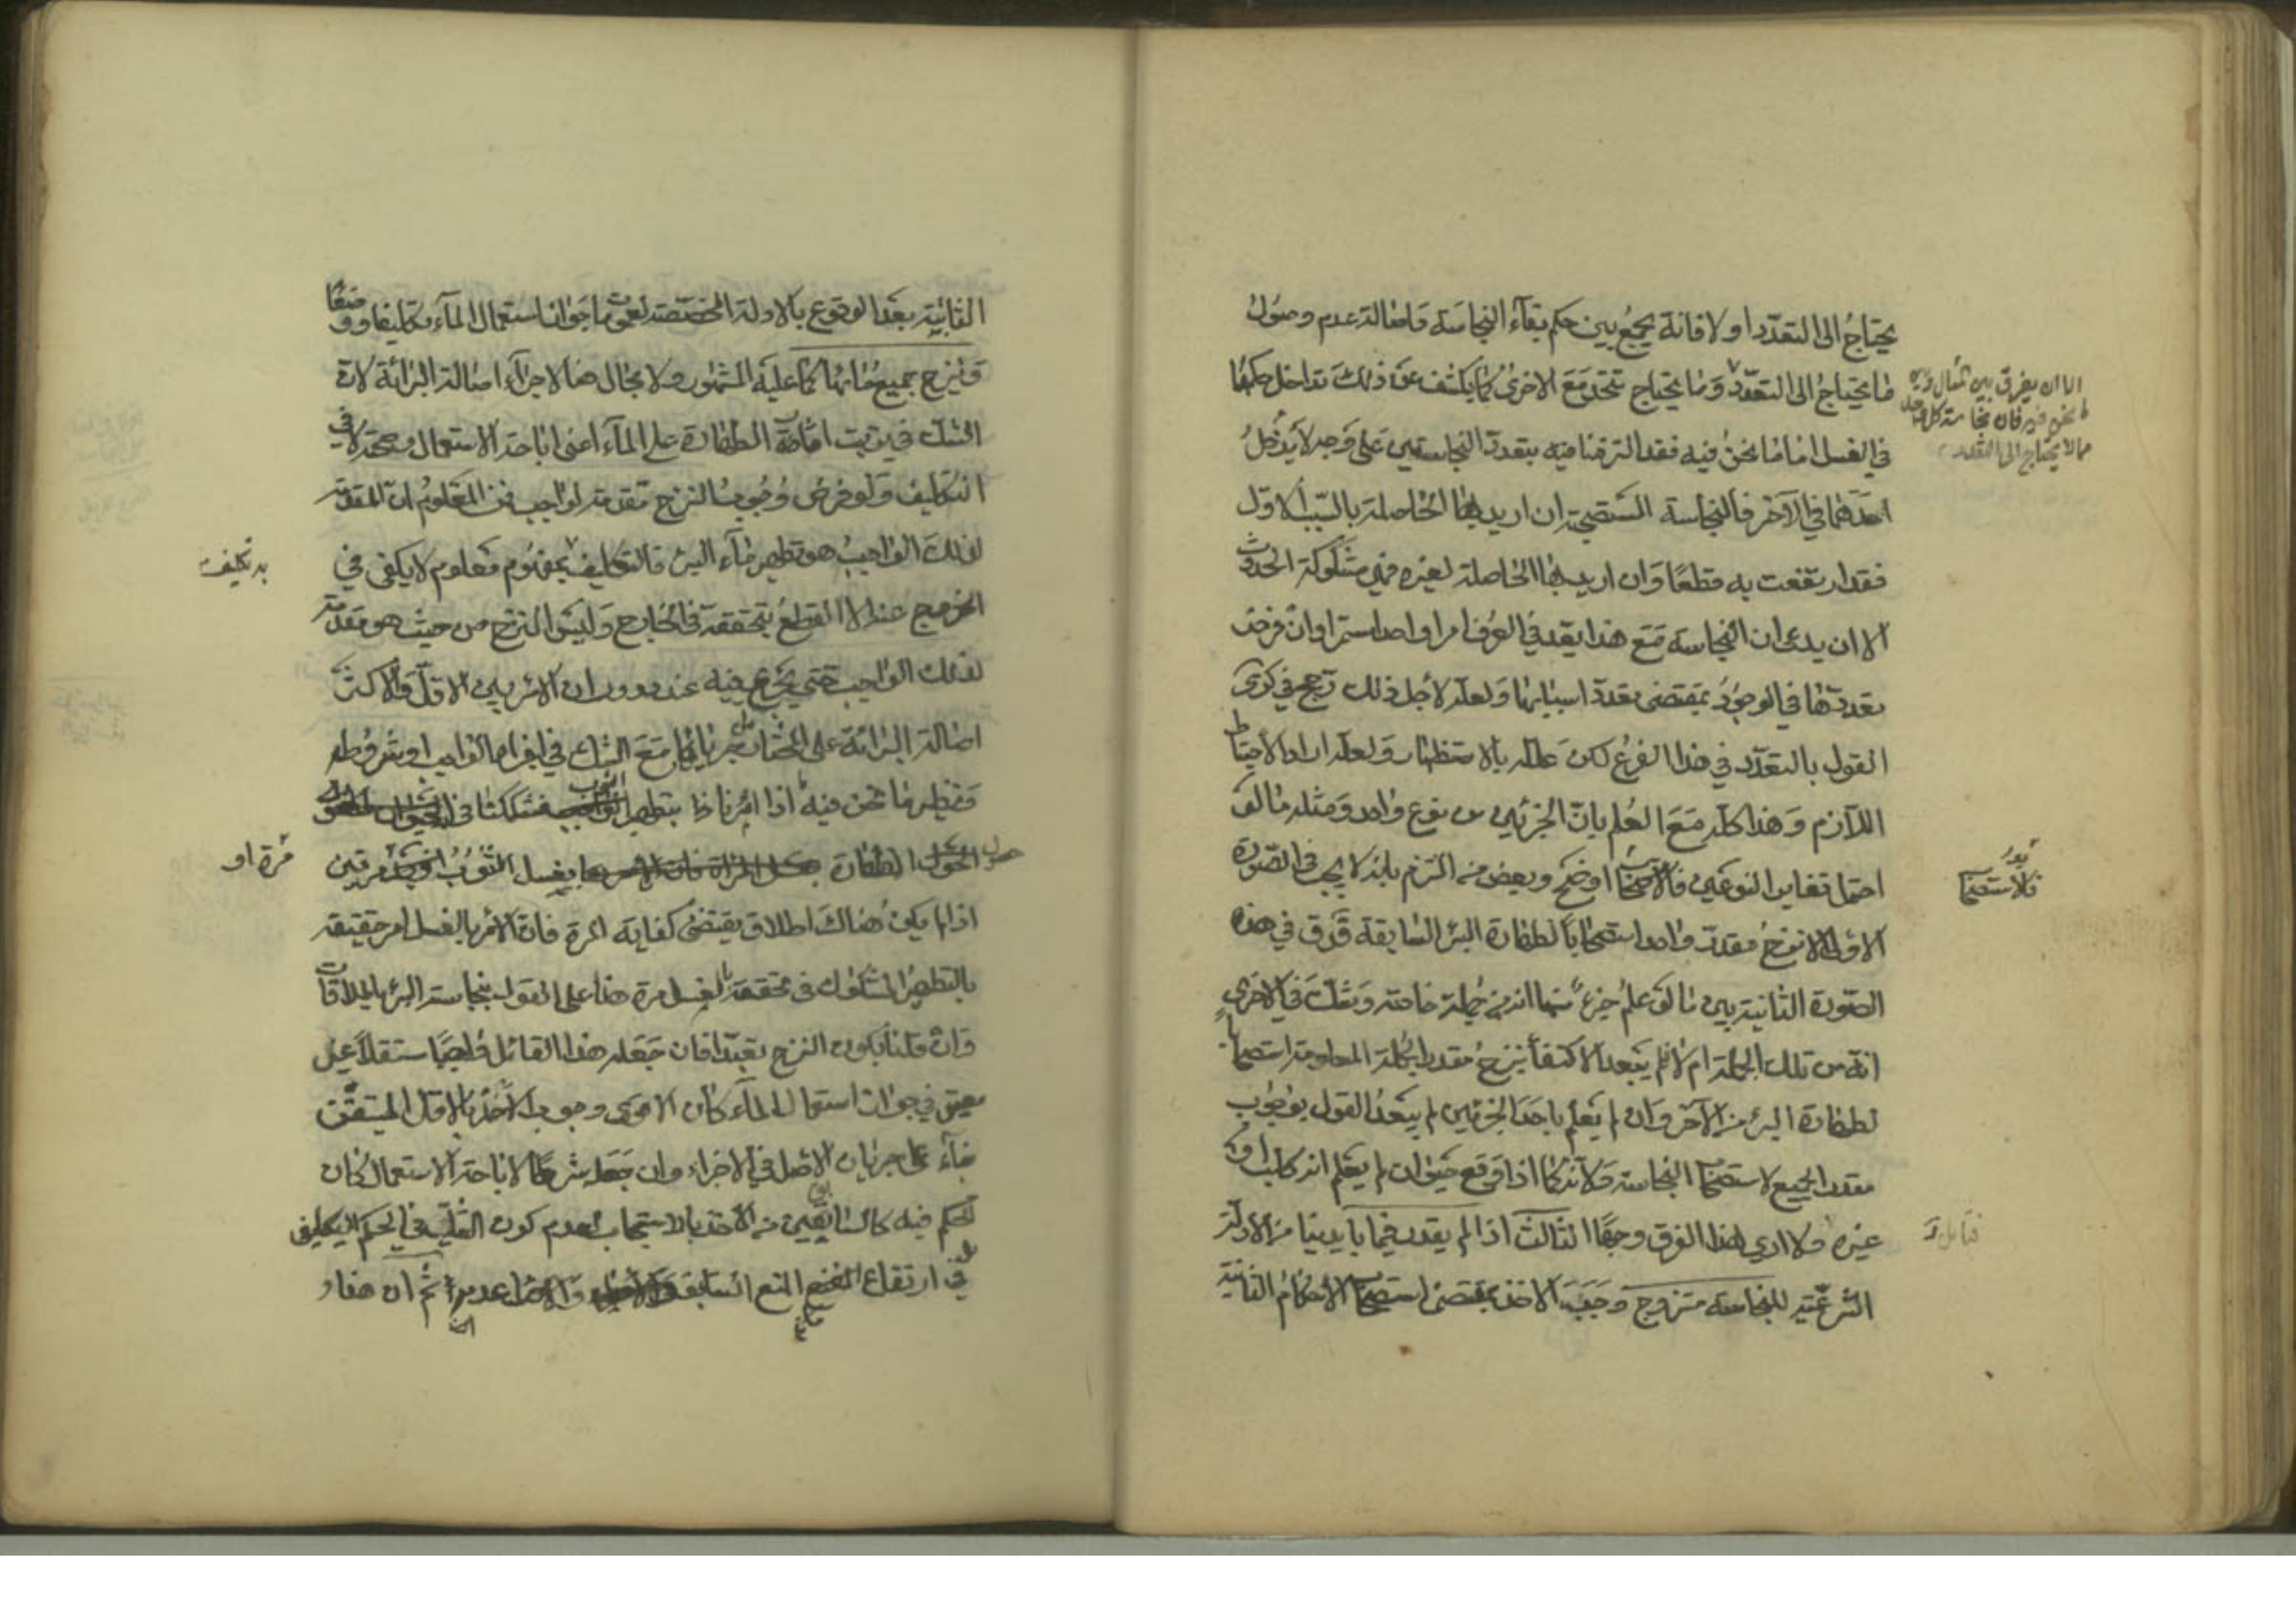 يحتاج الى التعدد او لا فانه يجمع بين حكم بقاء النجاسة واصالة عدم وصول
ما يحتاج الى التعدد وما يحتاج تتحد مع الاخرى كما يكشف عن ذلك تداخل حكمهما
في الغسل اما ما نحن فيه فقد التزمنا فيه بتعدد النجاستين على وجه لا يدخل
احدهما في الآخر فالنجاسة المستصحبة ان اريد بها الحاصلة بالسبب الاول
فقد ارتفعت به قطعا وان اريد بها الحاصلة لغيره فهي مشكوكة الحدوث
الا ان يدعى ان النجاسة مع هذا يعد في العرف امرا واحدا مستمرا وان فرض
تعددها في الوجود بمقتضى تعدد اسبابها ولعله لاجل ذلك رجح في كرى
القول بالتعدد في هذا الفرع لكن علله بالاستظهار ولعله اراد الاحتياط
اللازم وهذا كله مع العلم بان الجزئين من نوع واحد ومثله ما لو
احتمل تغاير النوعين فالاستصحاب اوضح وبعض من التزم بانه لا يجب في الصورة
الاولى الا نزح مقدر واحد استصحابا لطهارة البئر السابقة فرق في هذه
الصورة الثانية بين ما لو علم جزء منها انه من جملة خاصة وشك في الاخرى
انه من تلك الجملة ام لا فلم يتبعد الاكتفاء بنزح مقدر الجملة المعلومة استصحابا
لطهارة البئر من الآخر وان لم يعلم باحد الجزئين لم يبعد القول بوجوب
مقدر الجميع لاستصحاب النجاسة ولانه كما اذا وقع حيوان لم يعلم انه كلب او
غيره ولا ادري لهذا الفرق وجها الثالث اذا لم يقدر فيما بايدينا من الادلة
الشرعية للنجاسة منزوح وجب الاخذ بمقتضى استصحاب الاحكام الثانية
الا ان يفرق بين المثال وبين
ما نحن فيه فان نجاسة كل واحد
مما لا يحتاج الى التعدد
فالاستصحاب
فتامل
الثابتة بعد الوقوع بالادلة المخصصة لعموم ما جواز استعمال الماء تكليفا ووضعا
فينزح جميع مائها كما عليه المشهور ولا مجال هنا لاجراء اصالة البرائة لان
الشك في ترتب آثار الطهارة على الماء اعنى اباحة الاستعمال وصحته لا في
التكليف ولو فرض وجوب النزح مقدمة لواجب فمن المعلوم ان المقدمة
لذلك الواجب هو تطهير ماء البئر فالتكليف بمفهوم معلوم لا يكفى في
الخروج عنه الا القطع بتحققه في الخارج وليس النزح من حيث هو مقدمة
لذلك الواجب حتى يرجع فيه عند دوران الامر بين الاقل والاكثر
اصالة البرائة على المختار من جريانها مع الشك في اجزاء الواجب او شروطه
ونظير ما نحن فيه ما اذا امرنا بتطهير الثوب فشككنا في
حصول الطهارة بغسل الثوب مرتين
اذا لم يكن هناك اطلاق يقتضى كفاية المرة فان الامر بالغسل امر حقيقة
بالتطهير المشكوك في تحققه بالغسل مرة هذا على القول بنجاسة البئر بالملاقات
وان قلنا بكون النزح تعبدا فان جعله هذا القائل واجبا مستقلا غير
معتبر في جواز استعمال الماء كان الاقوى وجوب الاخذ بالاقل المتيقن
بناء على جريان الاصل في الاجزاء وان جعله شرطا لاباحة الاستعمال كان
الحكم فيه كالسابقين من الاخذ بالاستصحاب لعدم كون الشك في الحكم التكليفي
بل في ارتفاع المنع السابق والاصل عدمه ثم ان هذا و
به تكليف
مرة او